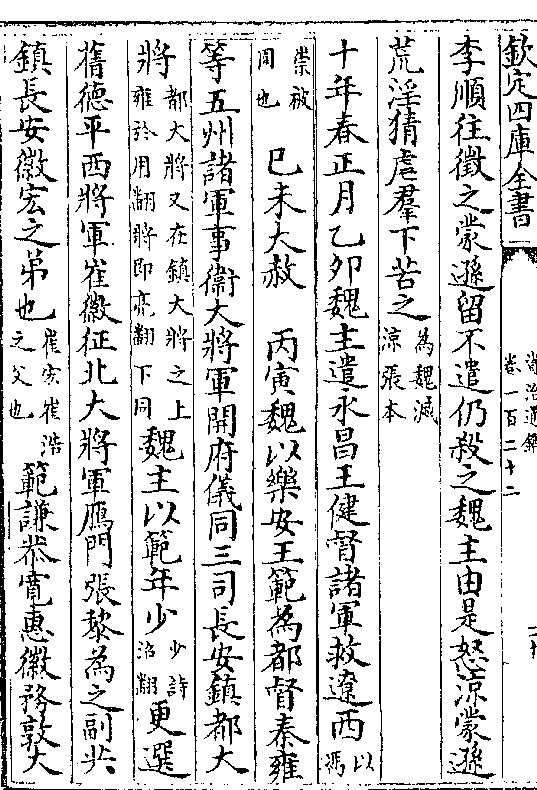 欽定四庫全書
資治通鑑
卷一百二十二
李順往徵之蒙遜留不遣仍殺之魏主由是怒涼蒙遜
荒淫猜虐羣下苦之為魏滅涼張本
十年春正月乙卯魏主遣永昌王健督諸軍救遼西以馮
崇被圍也 己未大赦 丙寅魏以樂安王範為都督秦雍
等五州諸軍事衛大將軍開府儀同三司長安鎮都大
將都大將又在鎮大將之上雍於用翻將即亮翻下同魏主以範年少少詩沼翻更選
舊德平西將軍崔徽征北大將軍鴈門張黎為之副共
鎮長安徽宏之弟也崔宏崔浩之父也範謙恭寬惠徽務敦大